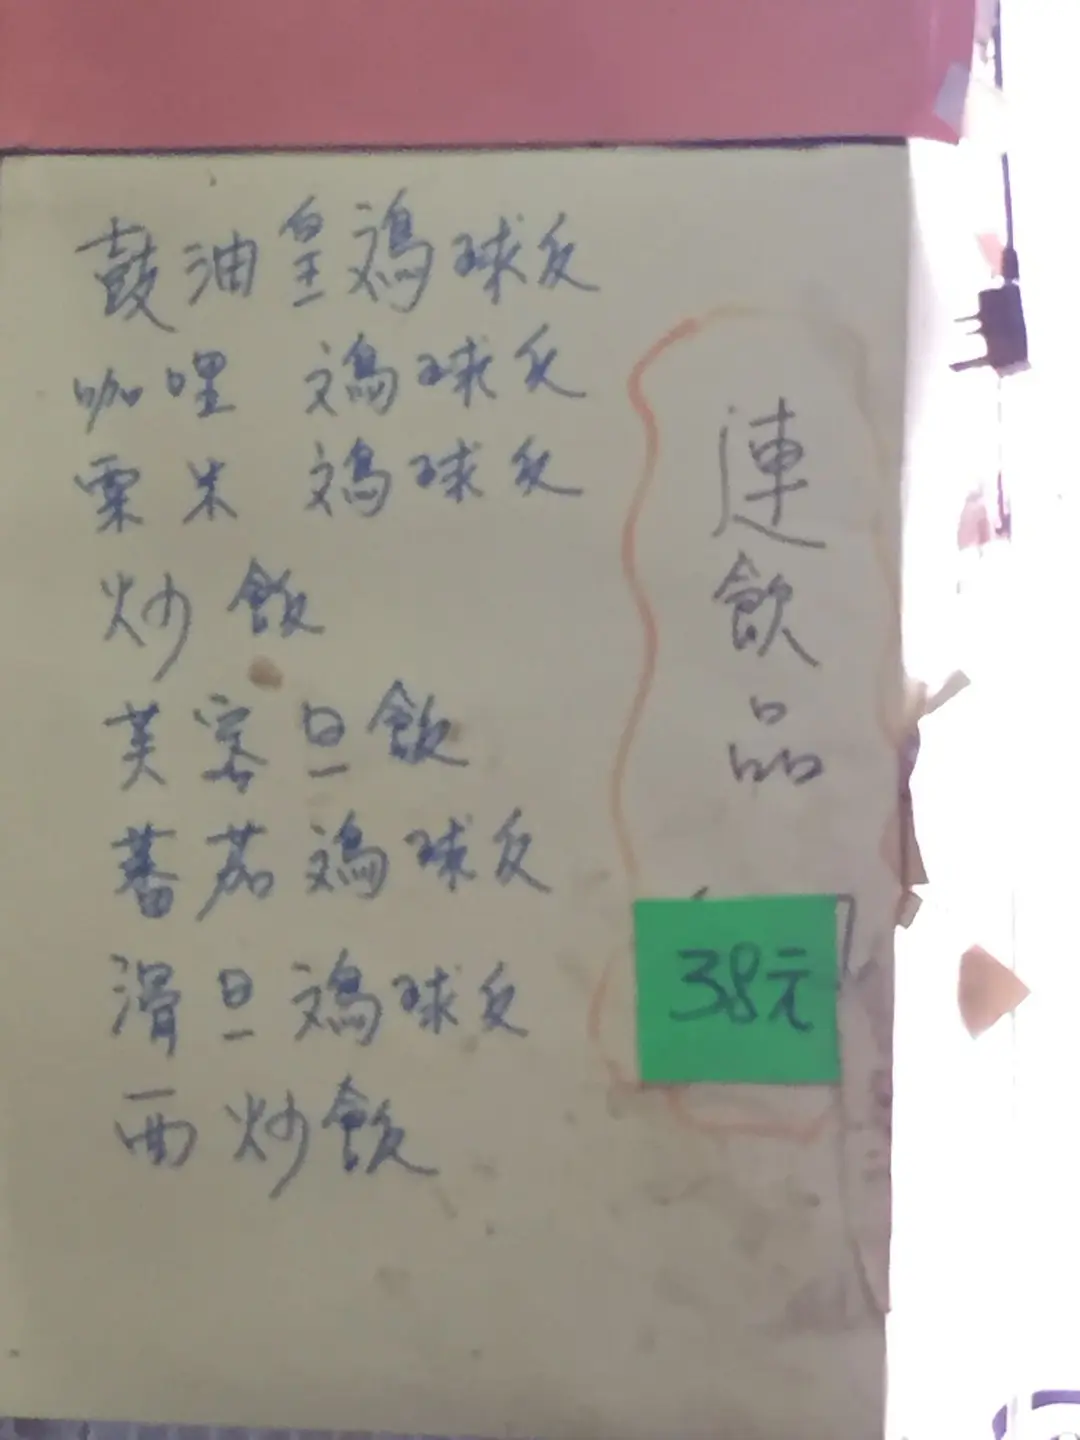 鼓油皇鸡球反
咖哩 鸡球反
粟米 鸡球反
炒飯
芙蓉旦飯
蕃茄鸡球反
滑旦鸡球反
西炒飯
連飲品
38元